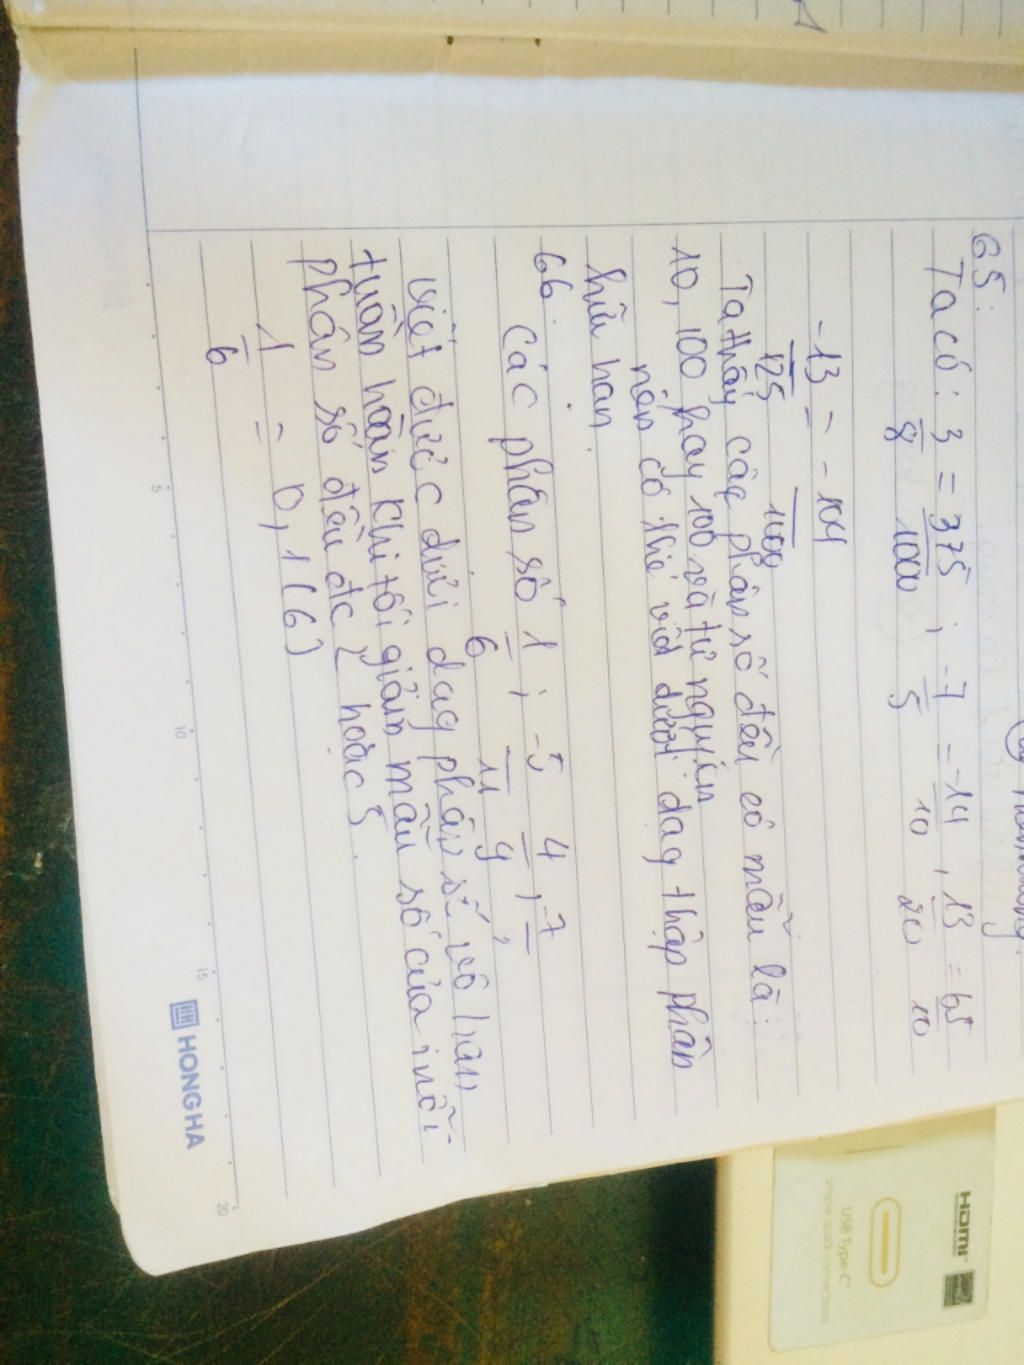 65:
Ta có: 3/8 = 375/1000 ; -7/5 = -14/10 , 13/20 = 65/10
-13/125 = -104/1100
Ta thấy các phân số đều có mẫu là:
10, 100 hay 100 và tử nguyên
nên có thể viết dưới dạg thập phân
hữu hạn.
66. Các phân số 1/6 ; -5/11 4/9 , -7
viết được dưới dag phân số vô hạn
tuần hoàn khi tối giản mẫu số của mỗi
phân số đều đc 2 hoặc 5.
1/6 = 0,1(6)
5
10
15
20
HONG HA
HDMI
USB Type-C